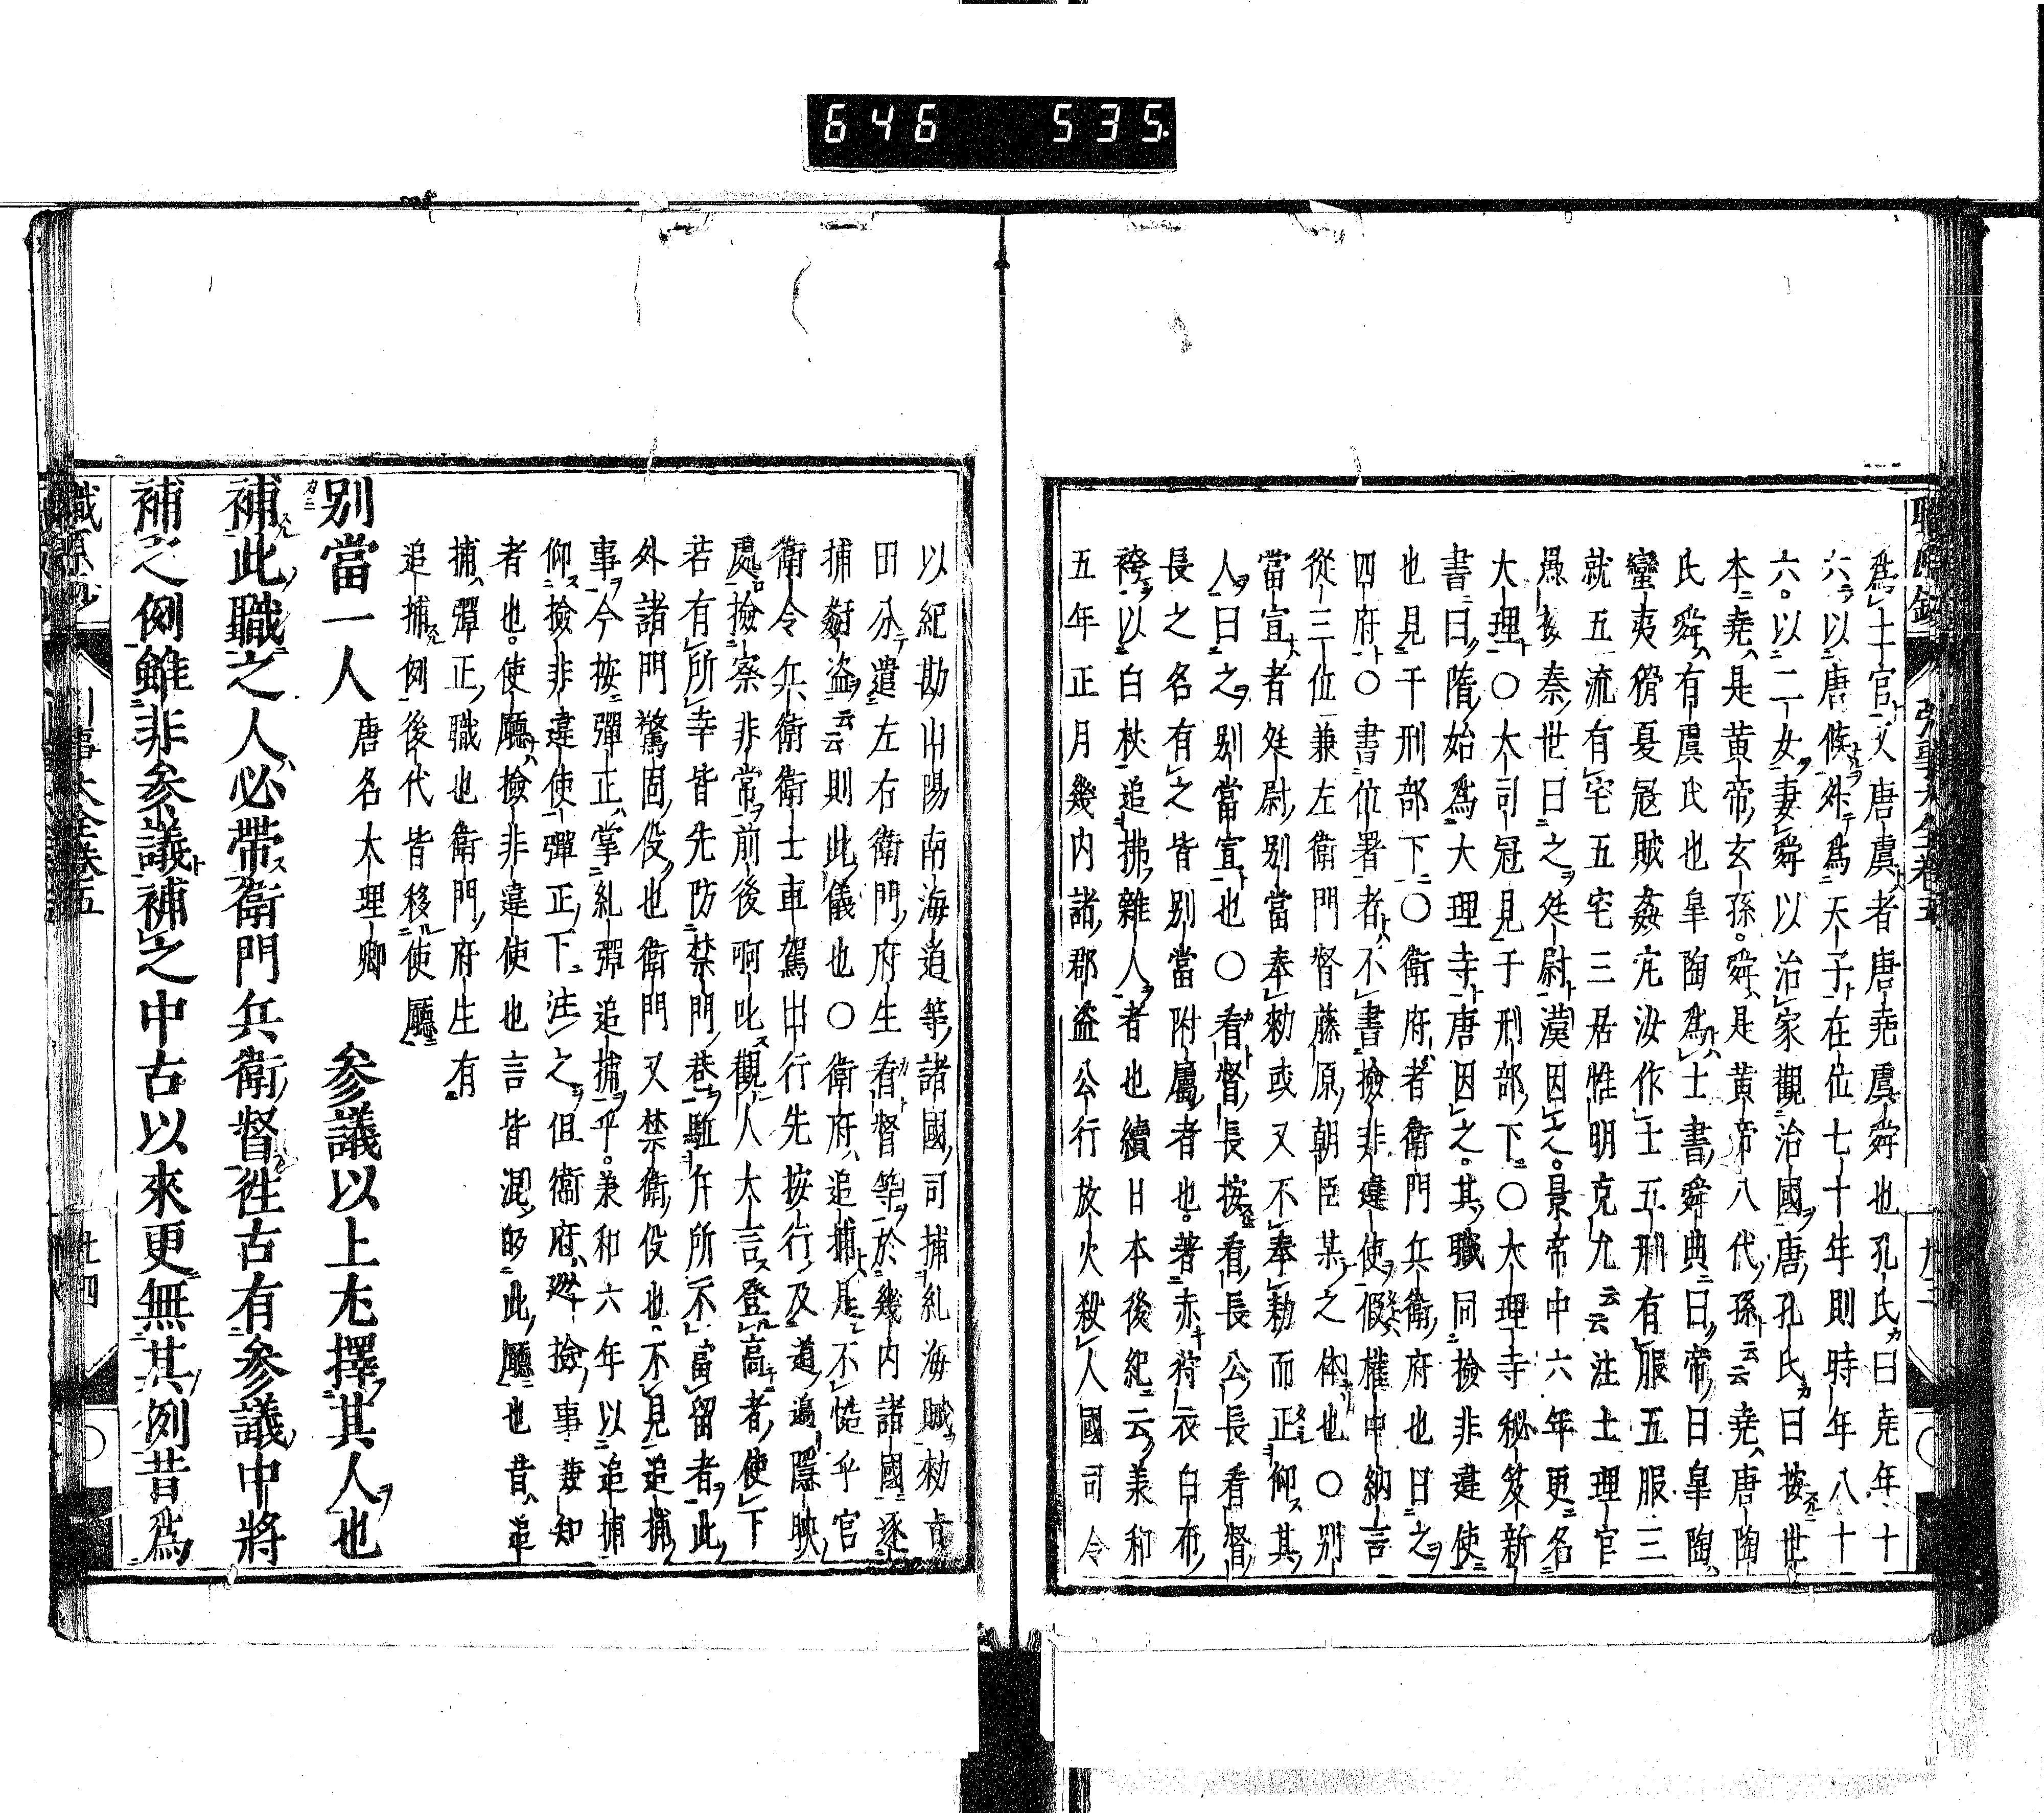 646 535
爲士官文唐虞者唐堯虞舜也孔氏曰堯年十
六以唐候舛爲天子在位七十年則時年八十
六以二女妻舜以治家觀治國唐孔氏曰按世
本堯是黄帝玄孫舜是黄帝八代孫云云堯唐陶
氏舜有虞氏也皐陶爲士書舜典曰帝曰皐陶
蠻夷猾夏冦賊姦宄汝作士五刑有服五服三
就五流有宅五宅三居惟明克允云云注士理官
愚按秦世曰之廷尉漢因之景帝中六年更名
大理〇大司冠見于刑部下〇大理寺秘笈新
書曰隋始爲大理寺唐因之其職同撿非違使
也見于刑部下〇衛府者衛門兵衛府也曰之
四府〇書位署者不書撿非違使假權中納言
從三位兼左衛門督藤原朝臣某之体也〇別
當宣者廷尉別當奉勅或又不奉勅而正仰其
人曰之別當宣也〇看督長按看長公長看督
長之名有之皆別當附屬者也著赤狩衣白布
袴以白杖追拂雜人者也續日本後紀云義和
五年正月幾内諸郡盗公行放火殺人國司令
以紀勘山陽南海道等諸國司捕糺海賊勅肯
田分遣左右衛門府生看督等於幾内諸國逐
捕姧盗云云則此儀也〇衛府追捕是不慥乎官
衛令兵衛衛士車駕出行先按行及道邉隱映
處撿察非常前後呵叱觀人大言登高者使下
若有所幸皆先防禁門巷駈斥所不當留者此
外諸門驚固役也衛門又禁衛役也不見追捕
事今按彈正掌糺彈追捕乎兼和六年以追捕
仰撿非違使彈正下注之但衞府巡撿事兼知
者也使廳撿非違使也言皆混的此廳也昔追
捕彈正職也衛門府生有
追捕例後代皆移使廳
別當一人 唐名大理卿 参議以上尤擇其人也
補此職之人必帶衛門兵衛督徃古有參議中將
補之例雖非參議補之中古以來更無其例昔爲
職原抄 引事大全卷五 廿四